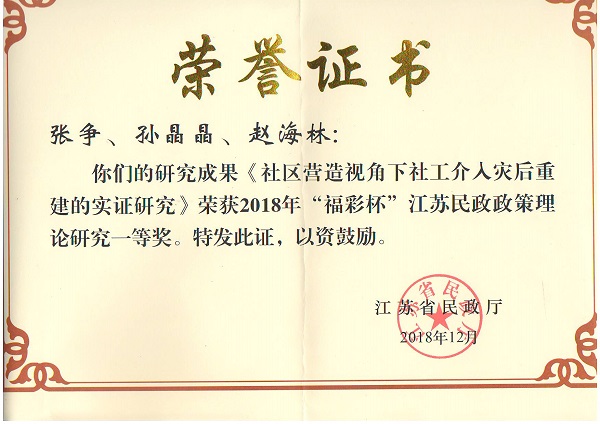 荣誉证书
张争、孙晶晶、赵海林:
你们的研究成果《社区营造视角下社工介入灾后重
建的实证研究》荣获2018年“福彩杯”江苏民政政策理
论研究一等奖。特发此证，以资鼓励。
江苏省民政厅
江苏省民政厅
2018年12月